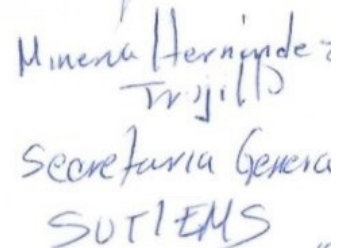 Minerva Hernández
Trujillo
Secretaria Genera
SUTIEMS